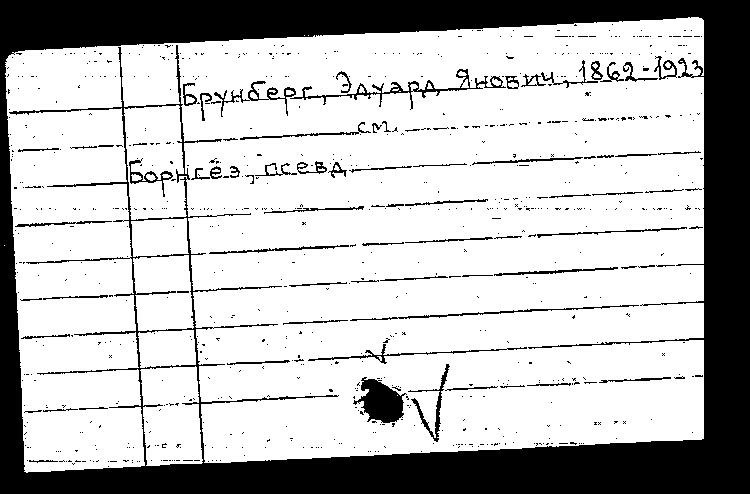 Брунберг, Эдуард Янович, 1862-1923
см.
Борнгёэ, псевд.